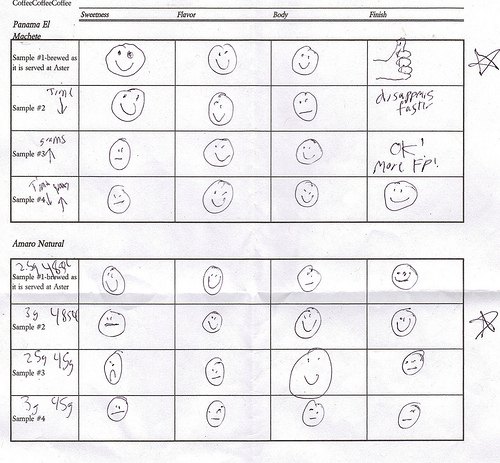 CoffeeCoffeeCoffee
Sweetness Flavor Body Finish
Panama El
Machete
Sample #1-brewed as
it is served at Aster
Time
Sample #2
disappears
faster
grams
Sample #3
OK!
More FP!
Time
Sample #4
Amaro Natural
Sample #1-brewed as
it is served at Aster
3g
Sample #2
25g 45g
Sample #3
3g 45g
Sample #4